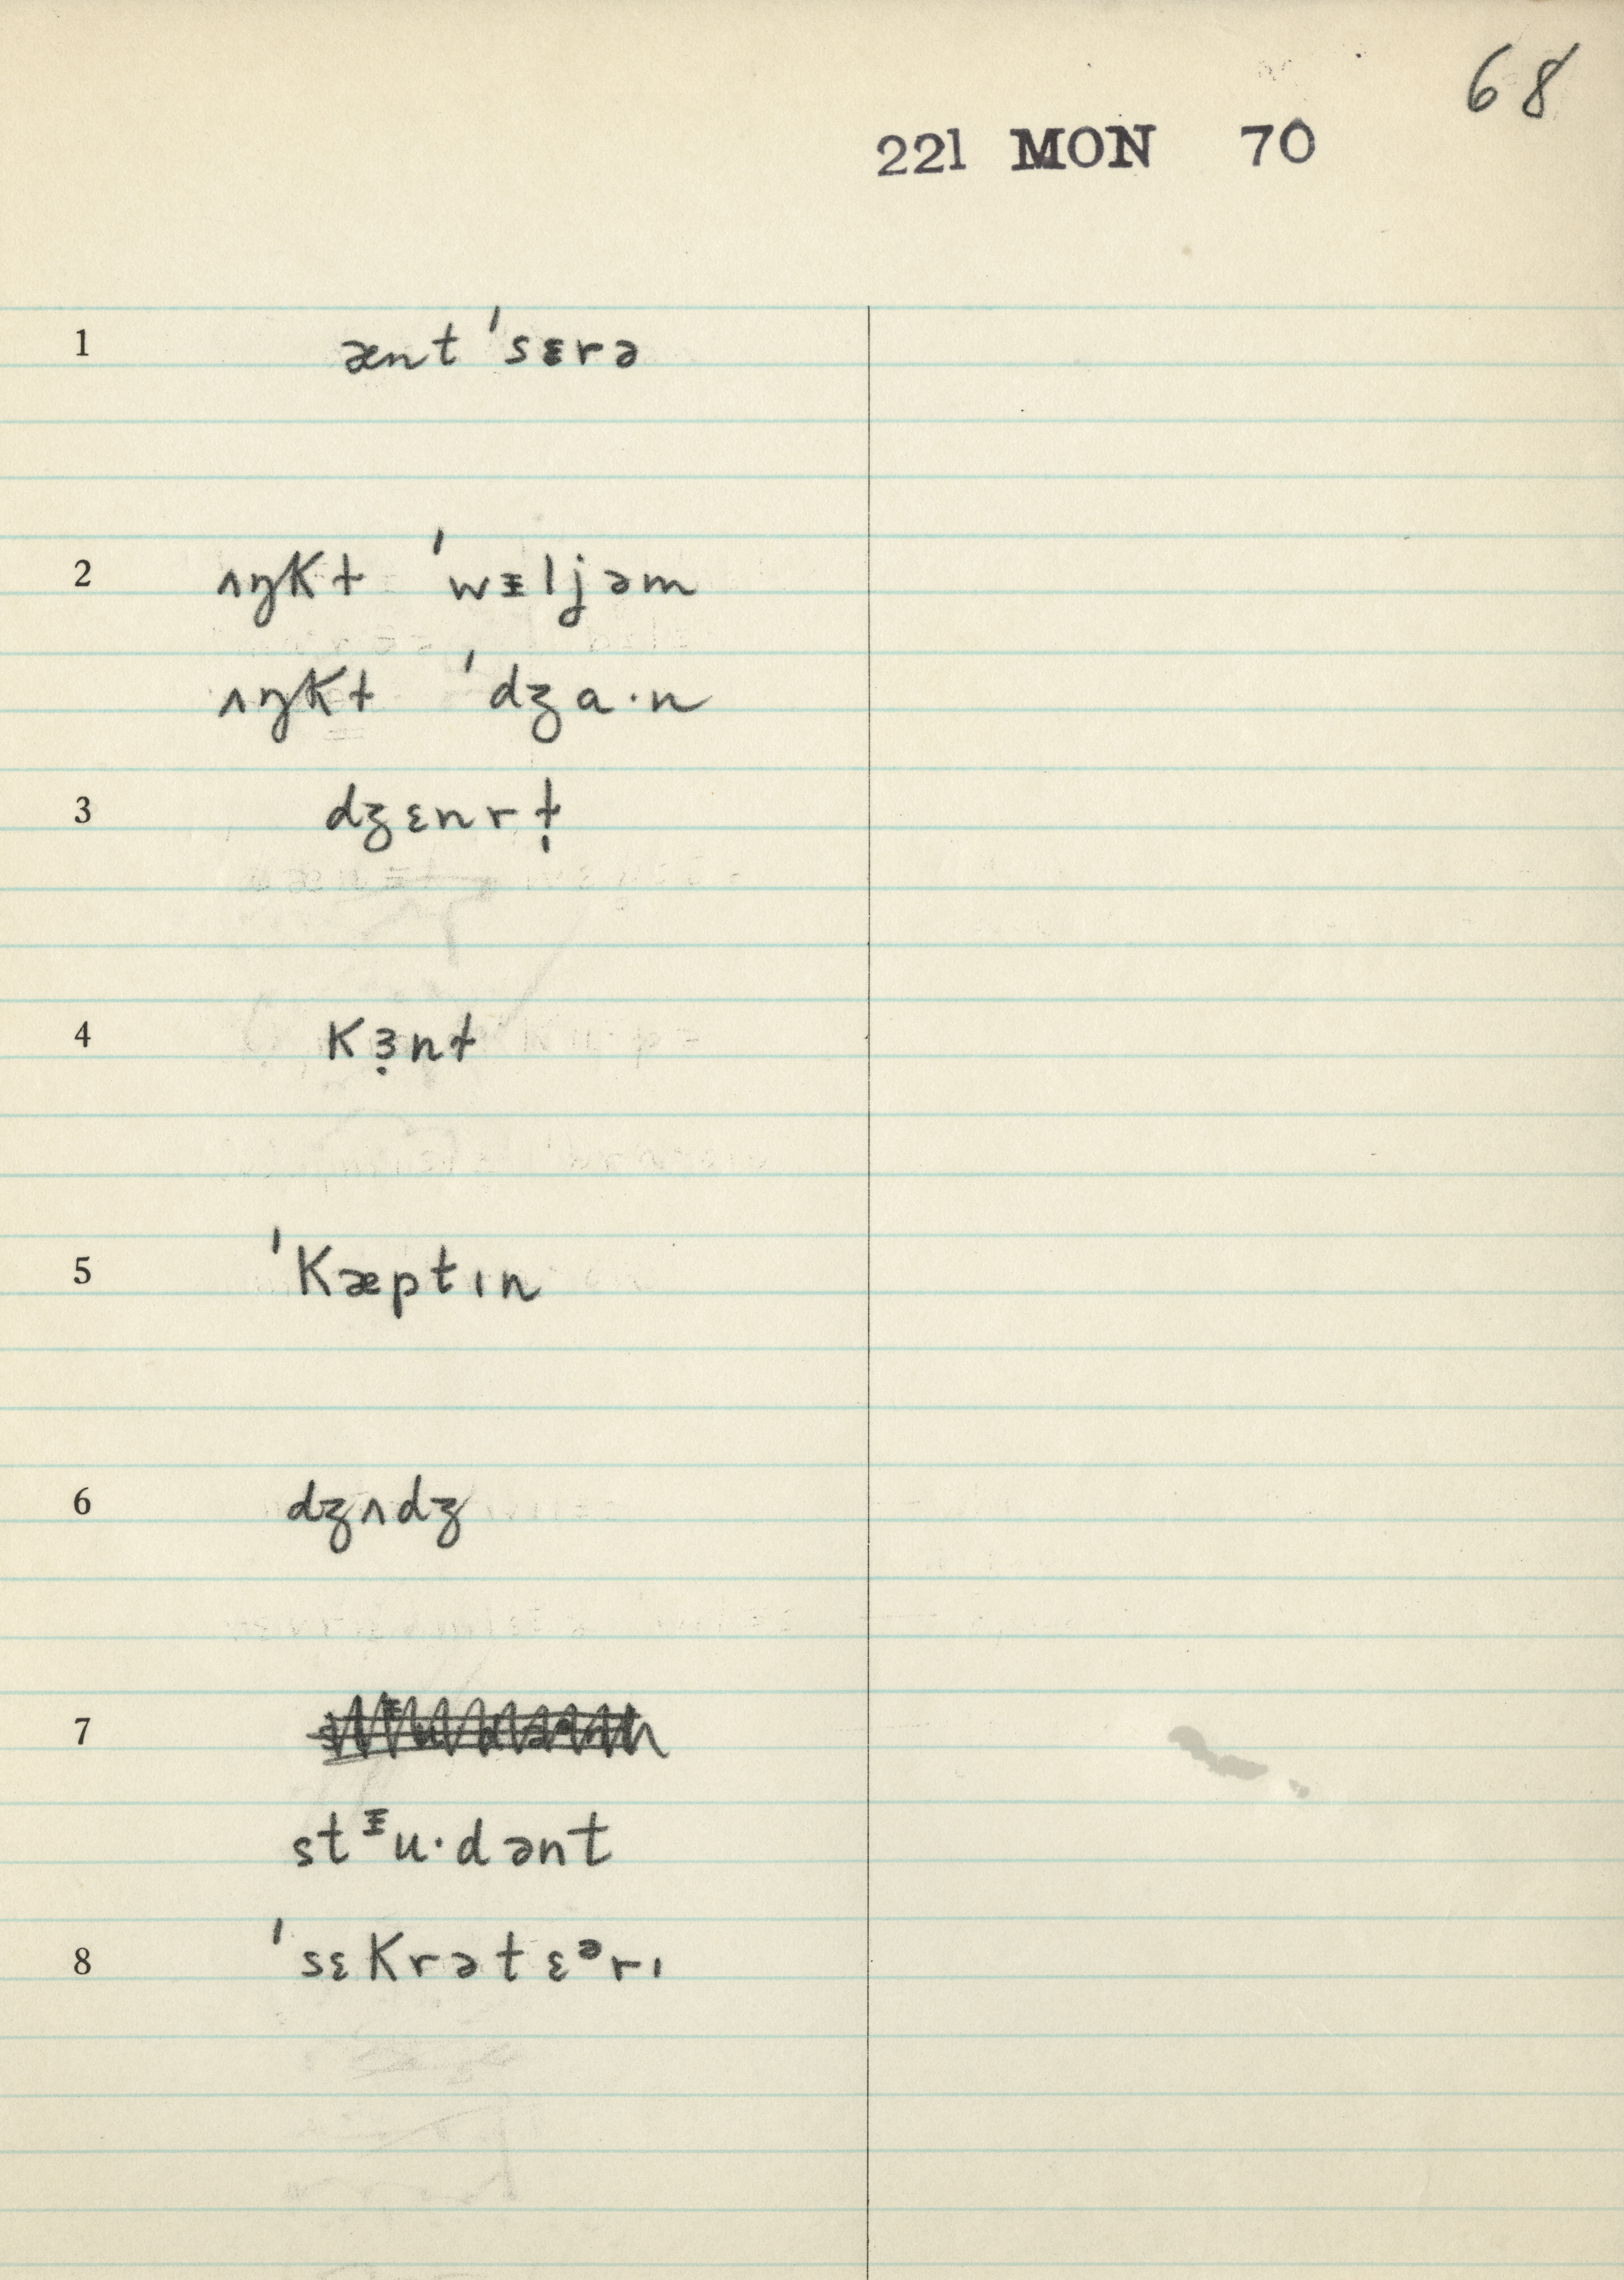 68
221 MON 70
1 ænt ˈsɛrə
2 ʌŋkt ˈwɪljəm
ʌŋkt ˈdʒa·n
3 dʒɛnrt̩
4 kɜ̣nt
5 ˈkæptɪn
6 dʒʌdʒ
7
stᶤu·dənt
8 ˈsɛkrətɛᵊrɪ